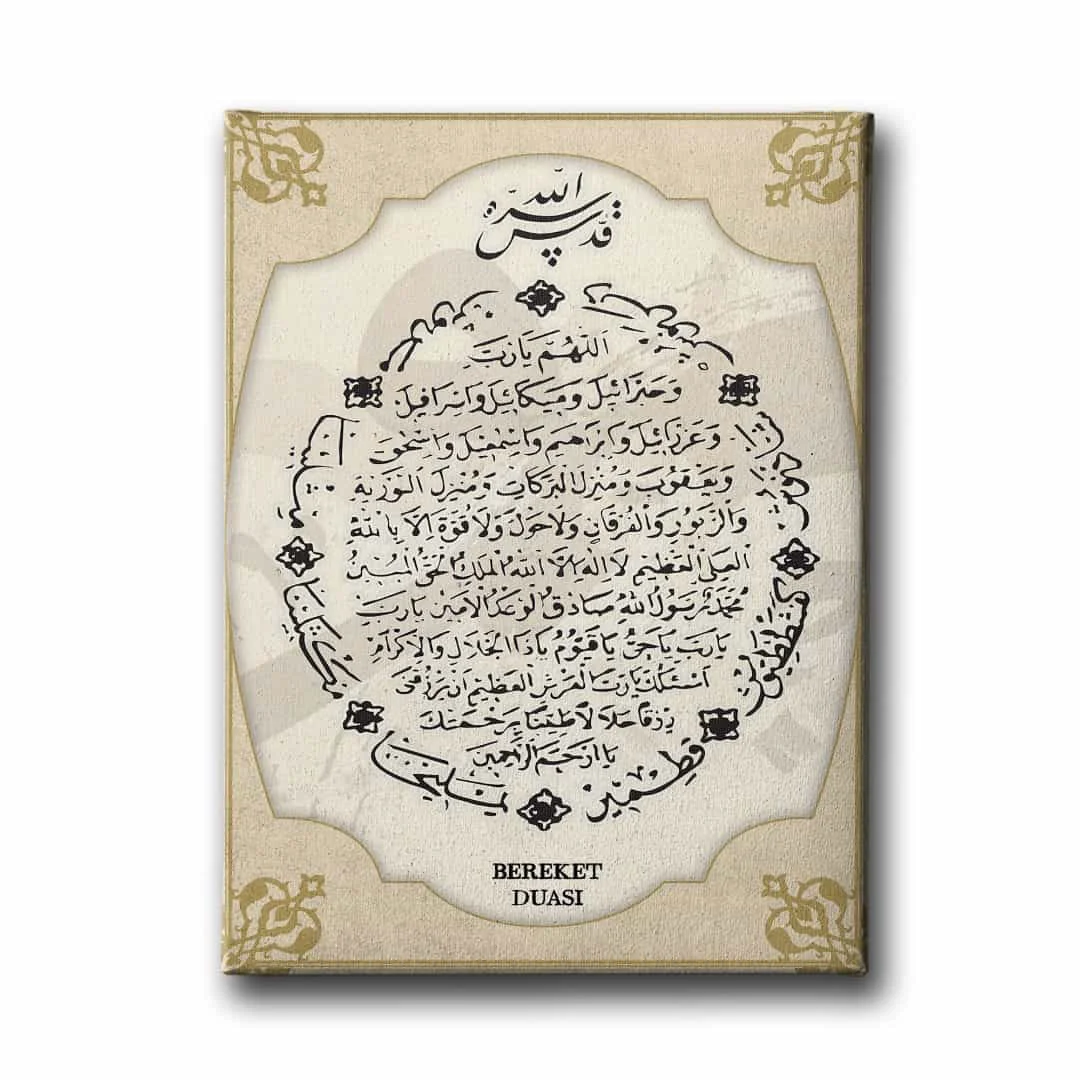 قدّس الله سرّه
اللهم يارب
وجبرائيل وميكائيل واسرافيل
وعزرائيل وابراهيم واسمعيل واسحق
ويعقوب ومنزل البركات ومنزل التورية
والزبور والفرقان ولا حول ولا قوة الا بالله
العلي العظيم لا اله الا الله الملك الحق المبين
محمد رسول الله صادق الوعد الامين يارب
يارب ياحي ياقيوم ياذا الجلال والاكرام
اسئلك يارب العرش العظيم ان يرزقني
رزقا حلالا طيبا برحمتك
يا ارحم الراحمين
يمليخا
قطمير
BEREKET
DUASI